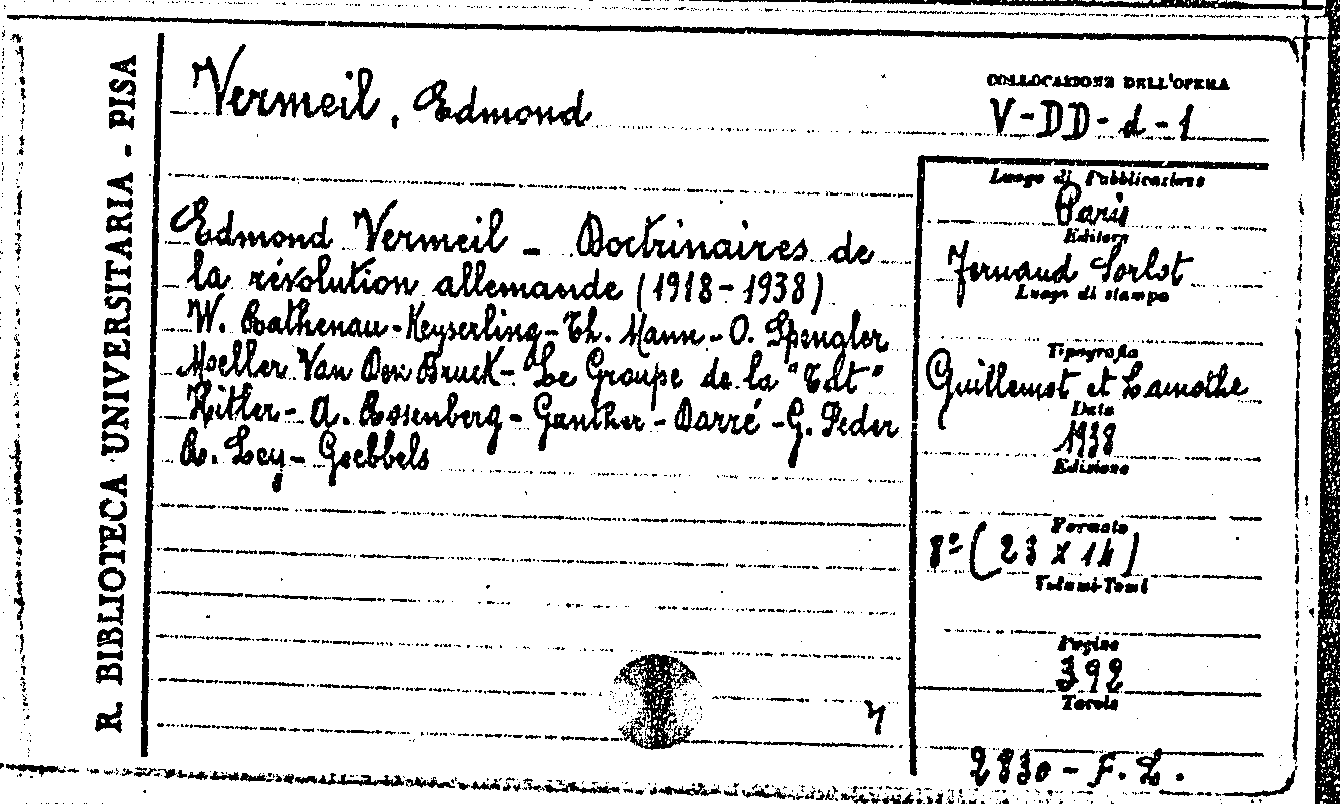 R. BIBLIOTECA UNIVERSITARIA - PISA
Vermeil, Edmond
COLLOCAZIONE DELL'OPERA
V-DD-d-1
Edmond Vermeil - Doctrinaires de
la révolution allemande (1918-1938)
W. Rathenau-Keyserling-Th. Mann-O. Spengler
Moeller Van Den Bruck-Le Groupe de la "Tat"
Hitler-A. Rosenberg-Gunther-Darré-G. Feder
R. Ley-Goebbels
Luogo di Pubblicazione
Paris
Editore
Fernand Sorlot
Luogo di stampa
Tipografia
Guillemot et Lamothe
Data
1938
Edizione
Formato
8º (23 x 14)
Volumi-Tomi
Pagine
392
Tavole
2830 - F. L.